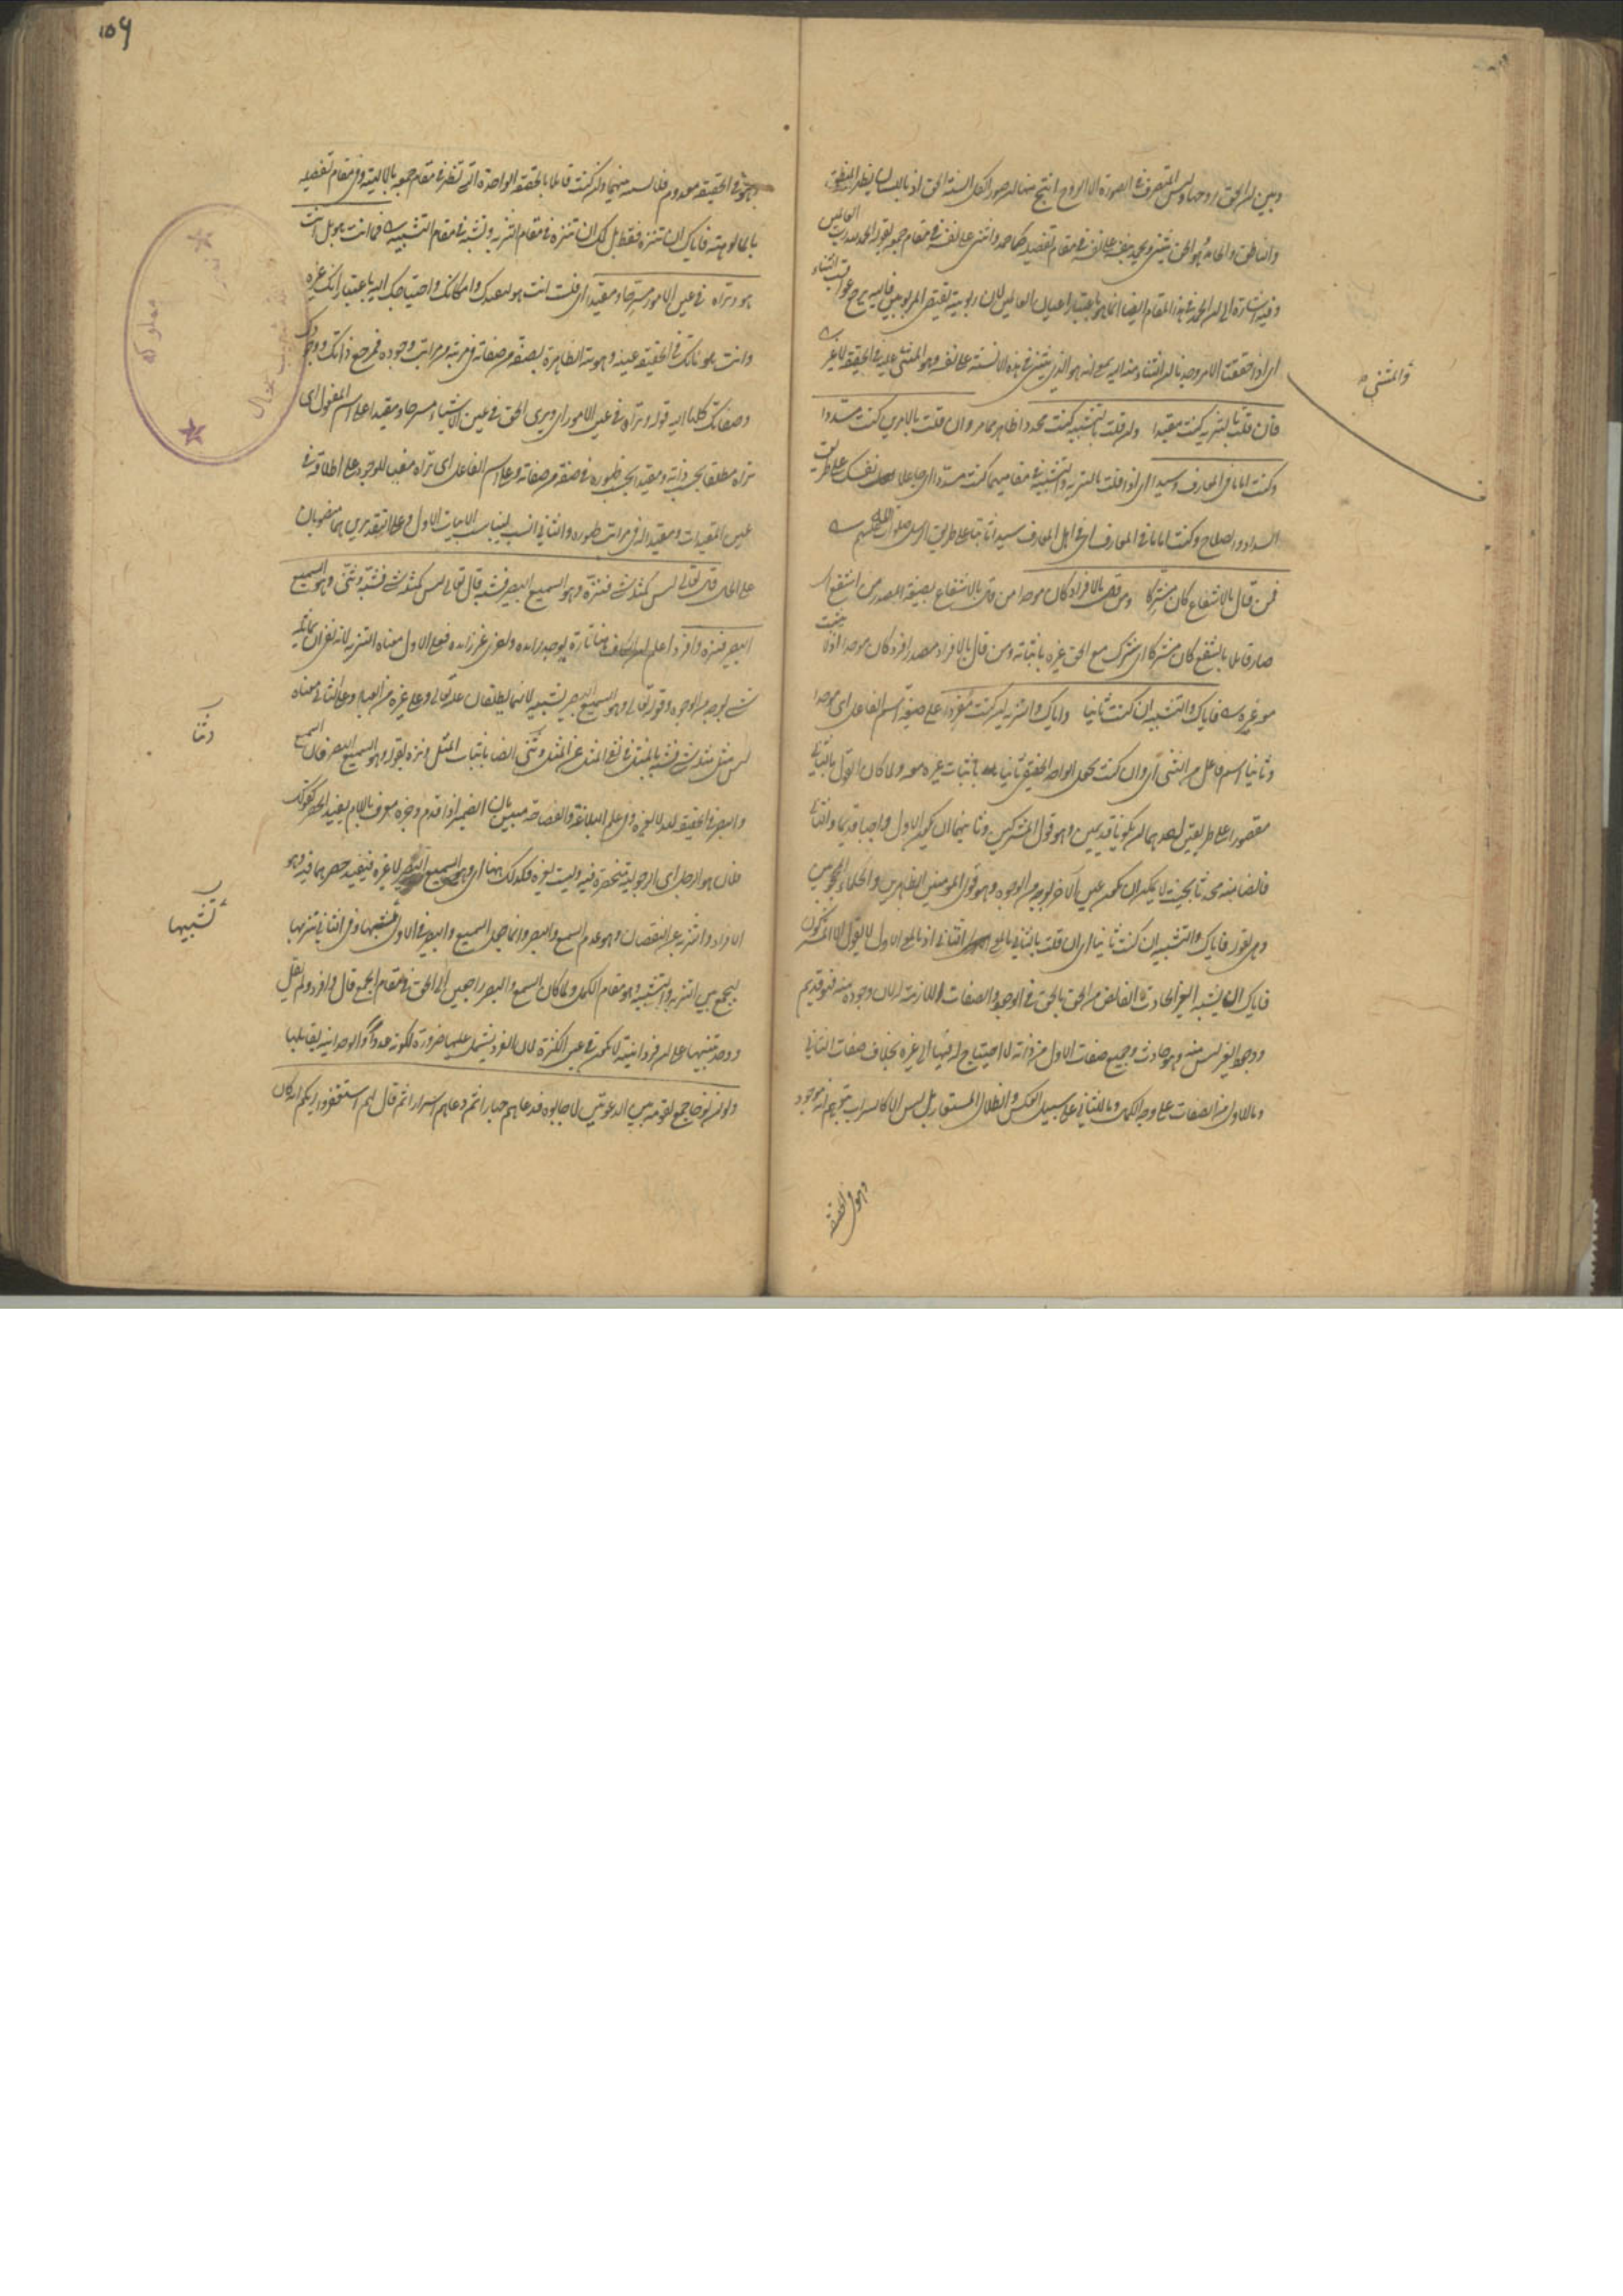 وبين ان الحق روحها وليس المتصرف في الصورة الا الروح انتج منها ان صور الكل السنة الحق اذ باللسان يظهر النطق
والناطق والحامد هو الحق يثني ويحمد بنفسه على نفسه في مقام تفصيله كما حمد واثنى على نفسه في مقام جمعه بقوله الحمد لله رب العالمين
وفيه اشارة الى ان الحمد في هذا المقام ايضا انما هو باعتبار اعيان العالمين لان ربوبيته تقتضي المربوبين فاليه يرجع عواقب الثناء
اي اذا حققت الامر وجدنا ان الثناء منه اليه بمعنى انه هو الذي يثني في هذه الالسنة على نفسه وهو المثنى عليه في الحقيقة لا غير
والمثني
فان قلت بالتنزيه كنت مقيدا وان قلت بالتشبيه كنت محددا ظاهر مما مر وان قلت بالامرين كنت مسددا
وكنت اماما في المعارف وسيدا اي اذا قلت بالتنزيه والتشبيه في مقاميهما كنت مسددا اي جاعلا نفسك على طريق
السداد والصلاح وكنت اماما في المعارف اي في اهل المعارف سيدا ثابتا على طريق الرسل صلوات الله عليهم
فمن قال بالاشفاع كان مشركا ومن قال بالافراد كان موحدا من قال بالاشفاع بصيغة المصدر من اشفع اي
صار قائلا بالشفع كان مشركا اي شرك مع الحق غيره باثباته ومن قال بالافراد مصدر افرد كان موحدا اذ لا يثبت
معه غيره فاياك والتشبيه ان كنت ثانيا واياك والتنزيه ان كنت مفردا على صيغة اسم الفاعل اي موحدا
وثانيا اسم فاعل من الثني اي وان كنت تجعل الواحد الحقيقي ثانيا باثبات غيره معه ولما كان القول بالثاني
مقصورا على طريقين احدهما ان يكونا قديمين وهو قول المشركين وثانيهما ان يكون الاول واجبا قديما والثاني
فائضا منه محدثا بحيث لا يمكن ان يكون عين الاخر بوجه من الوجوه وهو قول المؤمنين الظاهرين والحكماء المحجوبين
وهي بقوله فاياك والتشبيه ان كنت ثانيا اي ان قلت بالثاني بالمعنى الثاني اذ بالمعنى الاول لا يقول الا المشركون
فاياك ان تشبه الغير الحادث الفائض من الحق بالحق في الوجود والصفات اللازمة له لان وجوده منه فهو قديم
ووجود الغير ليس منه وهو حادث وجميع صفات الاول من ذاته لا احتياج له فيها الى غيره بخلاف صفات الثاني
وما للاول من الصفات على وجه الكمال وما للثاني على سبيل العكس والظلال المستعار بل ليس الا كالسراب يتوهم انه موجود
وهو في الحقيقة
١٥٩
وهو في الحقيقة معدوم فلا تشبه منهما وان كنت قائلا بالحقيقة الواحدة التي تظهر في مقام جمعه بالالهية وفي مقام تفصيله
بالمألوهية فاياك ان تنزه فقط بل لك ان تنزه في مقام التنزيه وتشبه في مقام التشبيه فما انت هو بل انت
هو وتراه في عين الامور مسرحا ومقيدا اي فلست انت هو لتقيدك وامكانك واحتياجك اليه باعتبار انك غيره
وانت هو لانك في الحقيقة عينه وهويته الظاهرة بصفة من صفاته في مرتبة من مراتب وجوده فمرجع ذاتك ووجودك
وصفاتك كلها اليه قوله وتراه في عين الامور اي وترى الحق في عين الاشياء مسرحا ومقيدا على اسم المفعول اي
تراه مطلقا بحسب ذاته ومقيدا بحسب ظهوره في صفة من صفاته وعلى اسم الفاعل اي تراه مبقيا للوجود على اطلاقه في
عين المقيدات ومقيدا له في مراتب ظهوره والثاني انسب ليناسب الابيات الاول وعلى التقديرين هما منصوبان
على الحال قال تعالى ليس كمثله شيء فنزه وهو السميع البصير فشبه قال تعالى ليس كمثله شيء فشبه وثنى وهو السميع
البصير فنزه وافرد اعلم ان الكاف هنا تارة يوخذ زائدة واخرى غير زائدة فعلى الاول معناه التنزيه لانه نفى ان يماثله
شيء بوجه من الوجوه وقوله تعالى وهو السميع البصير تشبيه لانهما يطلقان عليه تعالى وعلى غيره من العباد وعلى الثاني معناه
ليس مثل مثله شيء فشبه بالمثل في نفي المثل عن المثل وثنى ايضا باثبات المثل ونزه بقوله وهو السميع البصير فان السميع
وثنا
والبصير في الحقيقة لله لا لغيره وفي علم البلاغة والفصاحة مبين بان الضمير اذا قدم وخبره معرف باللام يفيد الحصر كقولك
فلان هو الرجل اي الرجولية منحصرة فيه وليست لغيره فكذلك ههنا اي وهو السميع البصير لا غيره فيفيد حصرهما فيه وهو
الافراد والتنزيه عن النقصان وهو عدم السمع والبصر وانما جعل السميع والبصير في الاول تشبيها وفي الثاني تنزيها
تشبيها
ليجمع بين التنزيه والتشبيه وهو مقام الكمال ولما كان السمع والبصر راجعين الى الحق في مقام الجمع قال وافرد ولم يقل
ووحد تنبيها على ان فردانيته لا تكون في عين الكثرة لان الفرد يشتمل عليها ضرورة لكونه عددا والوحدانية يقابلها
ولو ان نوحا جمع لقومه بين الدعوتين لاجابوه فدعاهم جهارا ثم دعاهم اسرارا ثم قال لهم استغفروا ربكم انه كان
مملوكه